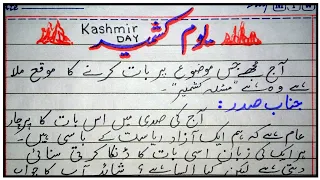 یوم کشمیر
Kashmir DAY
آج مجھے جس موضوع پر بات کرنے کا موقع ملا
ہے وہ ہے "مسئلہ کشمیر"۔
جناب صدر:
آج کی صدی میں اس بات کا پرچار
عام ہے کہ ہم ایک آزاد ریاست کے باسی ہیں۔
ہر ایک کی زبان اسی بات کا ڈنکا کرتی سنائی
دیتی ہے لیکن کیا ایسا ہے؟ شائد آپ کا جواب